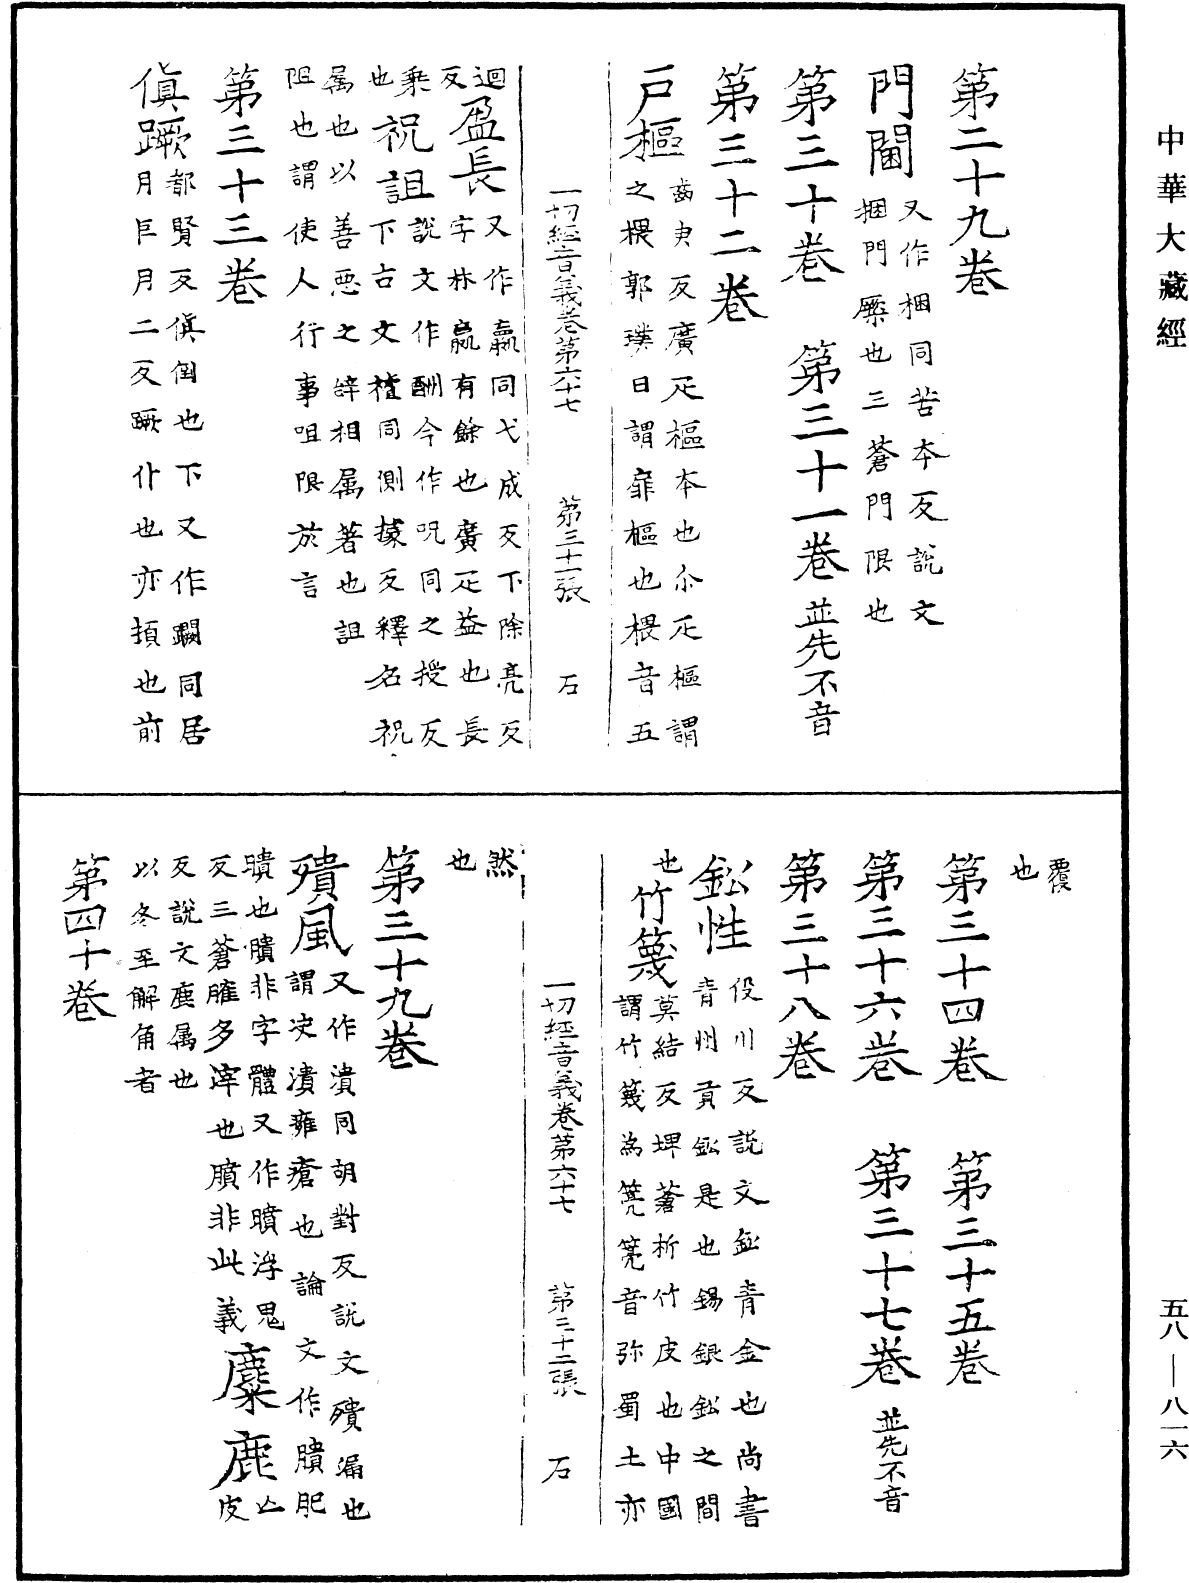 中華大藏經
第二十九卷
門閫又作梱同苦本反說文
梱門橜也三蒼門限也
第三十卷　第三十一卷並先不音
第三十二卷
戶樞齒朱反廣疋樞本也尒疋樞謂
之椳郭璞曰謂扉樞也椳音五
一切經音義卷第六十七　第三十一張　石
迴反
盈長又作贏同弋成反下除亮反
字林贏有餘也廣疋益也長
乘也
祝詛說文作詶今作呪同之授反
下古文䄍同測據反釋名祝
属也以善惡之辝相属著也詛
阻也謂使人行事咀限於言
第三十三卷
傎蹶都賢反傎倒也下又作蹷同居
月巨月二反蹶仆也亦頓也前
覆也
第三十四卷　第三十五卷
第三十六卷　第三十七卷並先不音
第三十八卷
鈆性役川反說文鈆青金也尚書
青州貢鈆是也錫銀鈆之間
也
竹篾莫結反埤蒼析竹皮也中國
謂竹篾為䉲䉲音弥蜀土亦
一切經音義卷第六十七　第三十二張　石
然也
第三十九卷
殨風又作潰同胡對反說文殨漏也
謂决潰癰瘡也論文作膭肥
膭也膭非字體又作䐴浮鬼
反三蒼䐛多滓也䐴非此義
麋鹿亡皮
反說文鹿属也
以冬至解角者
第四十卷
五八—八一六